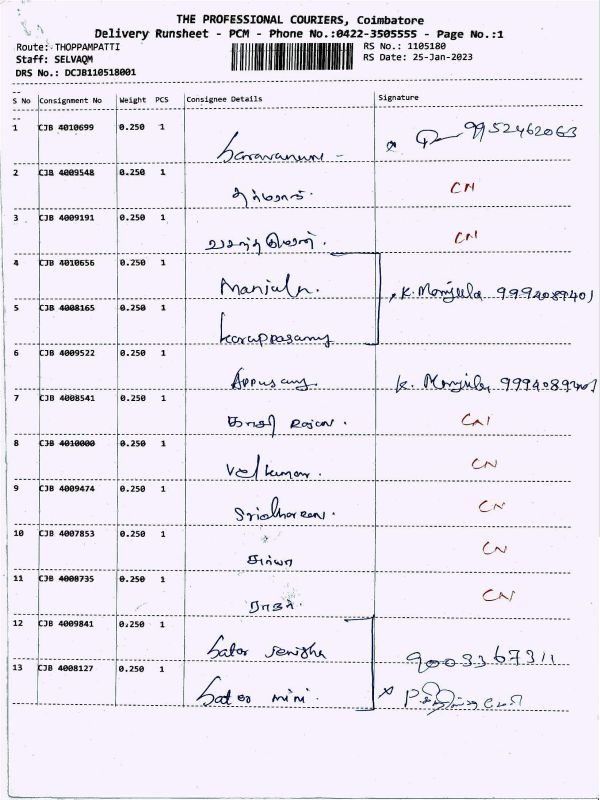 THE PROFESSIONAL COURIERS, Coimbatore
Delivery Runsheet - PCM - Phone No.:0422-3505555 - Page No.:1
Route: THOPPAMPATTI RS No.: 1105180
Staff: SELVAQM RS Date: 25-Jan-2023
DRS No.: DCJB110518001
S No Consignment No Weight PCS Consignee Details Signature
1 CJB 4010699 0.250 1 9952462063
2 CJB 4009548 0.250 1 CN
3 CJB 4009191 0.250 1 CN
4 CJB 4010656 0.250 1 Manjula. K. Manjula 9994089401
5 CJB 4008165 0.250 1 karuppasamy
6 CJB 4009522 0.250 1 Appusamy K. Manjula 9994089401
7 CJB 4008541 0.250 1 CN
8 CJB 4010000 0.250 1 Velkumar. CN
9 CJB 4009474 0.250 1 Sridharan. CN
10 CJB 4007853 0.250 1 CN
11 CJB 4008735 0.250 1 CN
12 CJB 4009841 0.250 1 9003367311
13 CJB 4008127 0.250 1 mini.